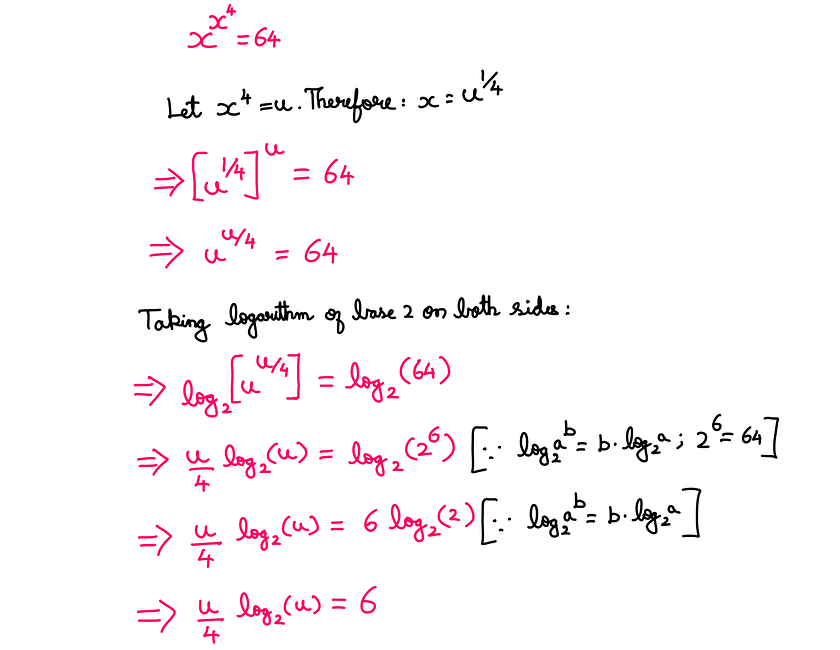 x^{x^4} = 64
Let x^4 = u. Therefore: x = u^{1/4}
⇒ [u^{1/4}]^u = 64
⇒ u^{u/4} = 64
Taking logarithm of base 2 on both sides:
⇒ log_2[u^{u/4}] = log_2(64)
⇒ u/4 log_2(u) = log_2(2^6) [∵ log_2 a^b = b·log_2 a; 2^6 = 64]
⇒ u/4 log_2(u) = 6 log_2(2) [∵ log_2 a^b = b·log_2 a]
⇒ u/4 log_2(u) = 6